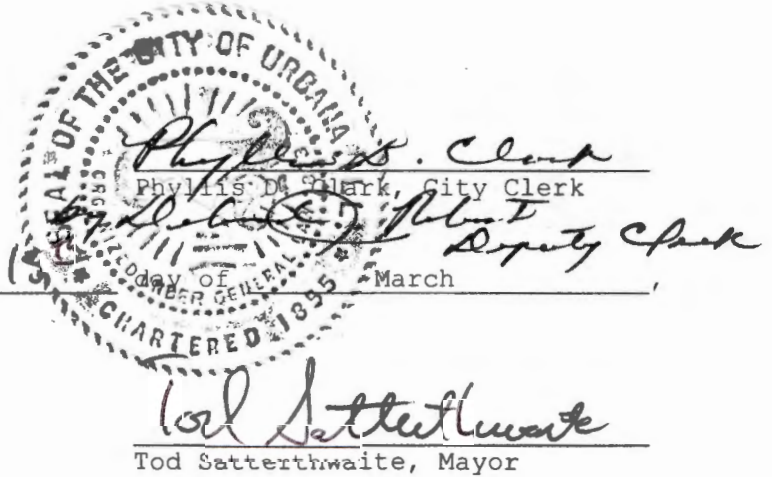 SEAL OF THE CITY OF URBANA
CHARTERED 1855
Phyllis D. Clark
Phyllis D. Clark, City Clerk
by Deputy Clerk
day of March ,
Tod Satterthwaite
Tod Satterthwaite, Mayor